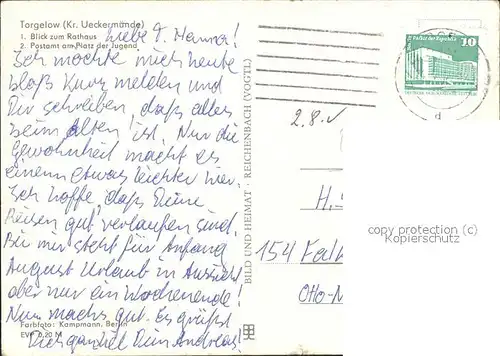 Torgelow (Kr. Ueckermünde)
1. Blick zum Rathaus
2. Postamt am Platz der Jugend
Liebe T. Hanna!
Ich möchte mich heute
bloß kurz melden und
Dir schreiben, daß alles
beim alten ist. Nur die
Gewohnheit macht es
einem etwas leichter hier.
Ich hoffe, daß Deine
Reisen gut verlaufen sind.
Bei mir steht für Anfang
August Urlaub in Aussicht
aber nur ein Wochenende!
Nun machs gut. Es grüßt
Dich ganz lieb Dein Andreas!
Farbfoto: Kampmann, Berlin
EVP 0,20 M
BILD UND HEIMAT · REICHENBACH (VOGTL)
10
2.8.
H.
154 Falk
Otto-N
copy protection (c)
Kopierschutz